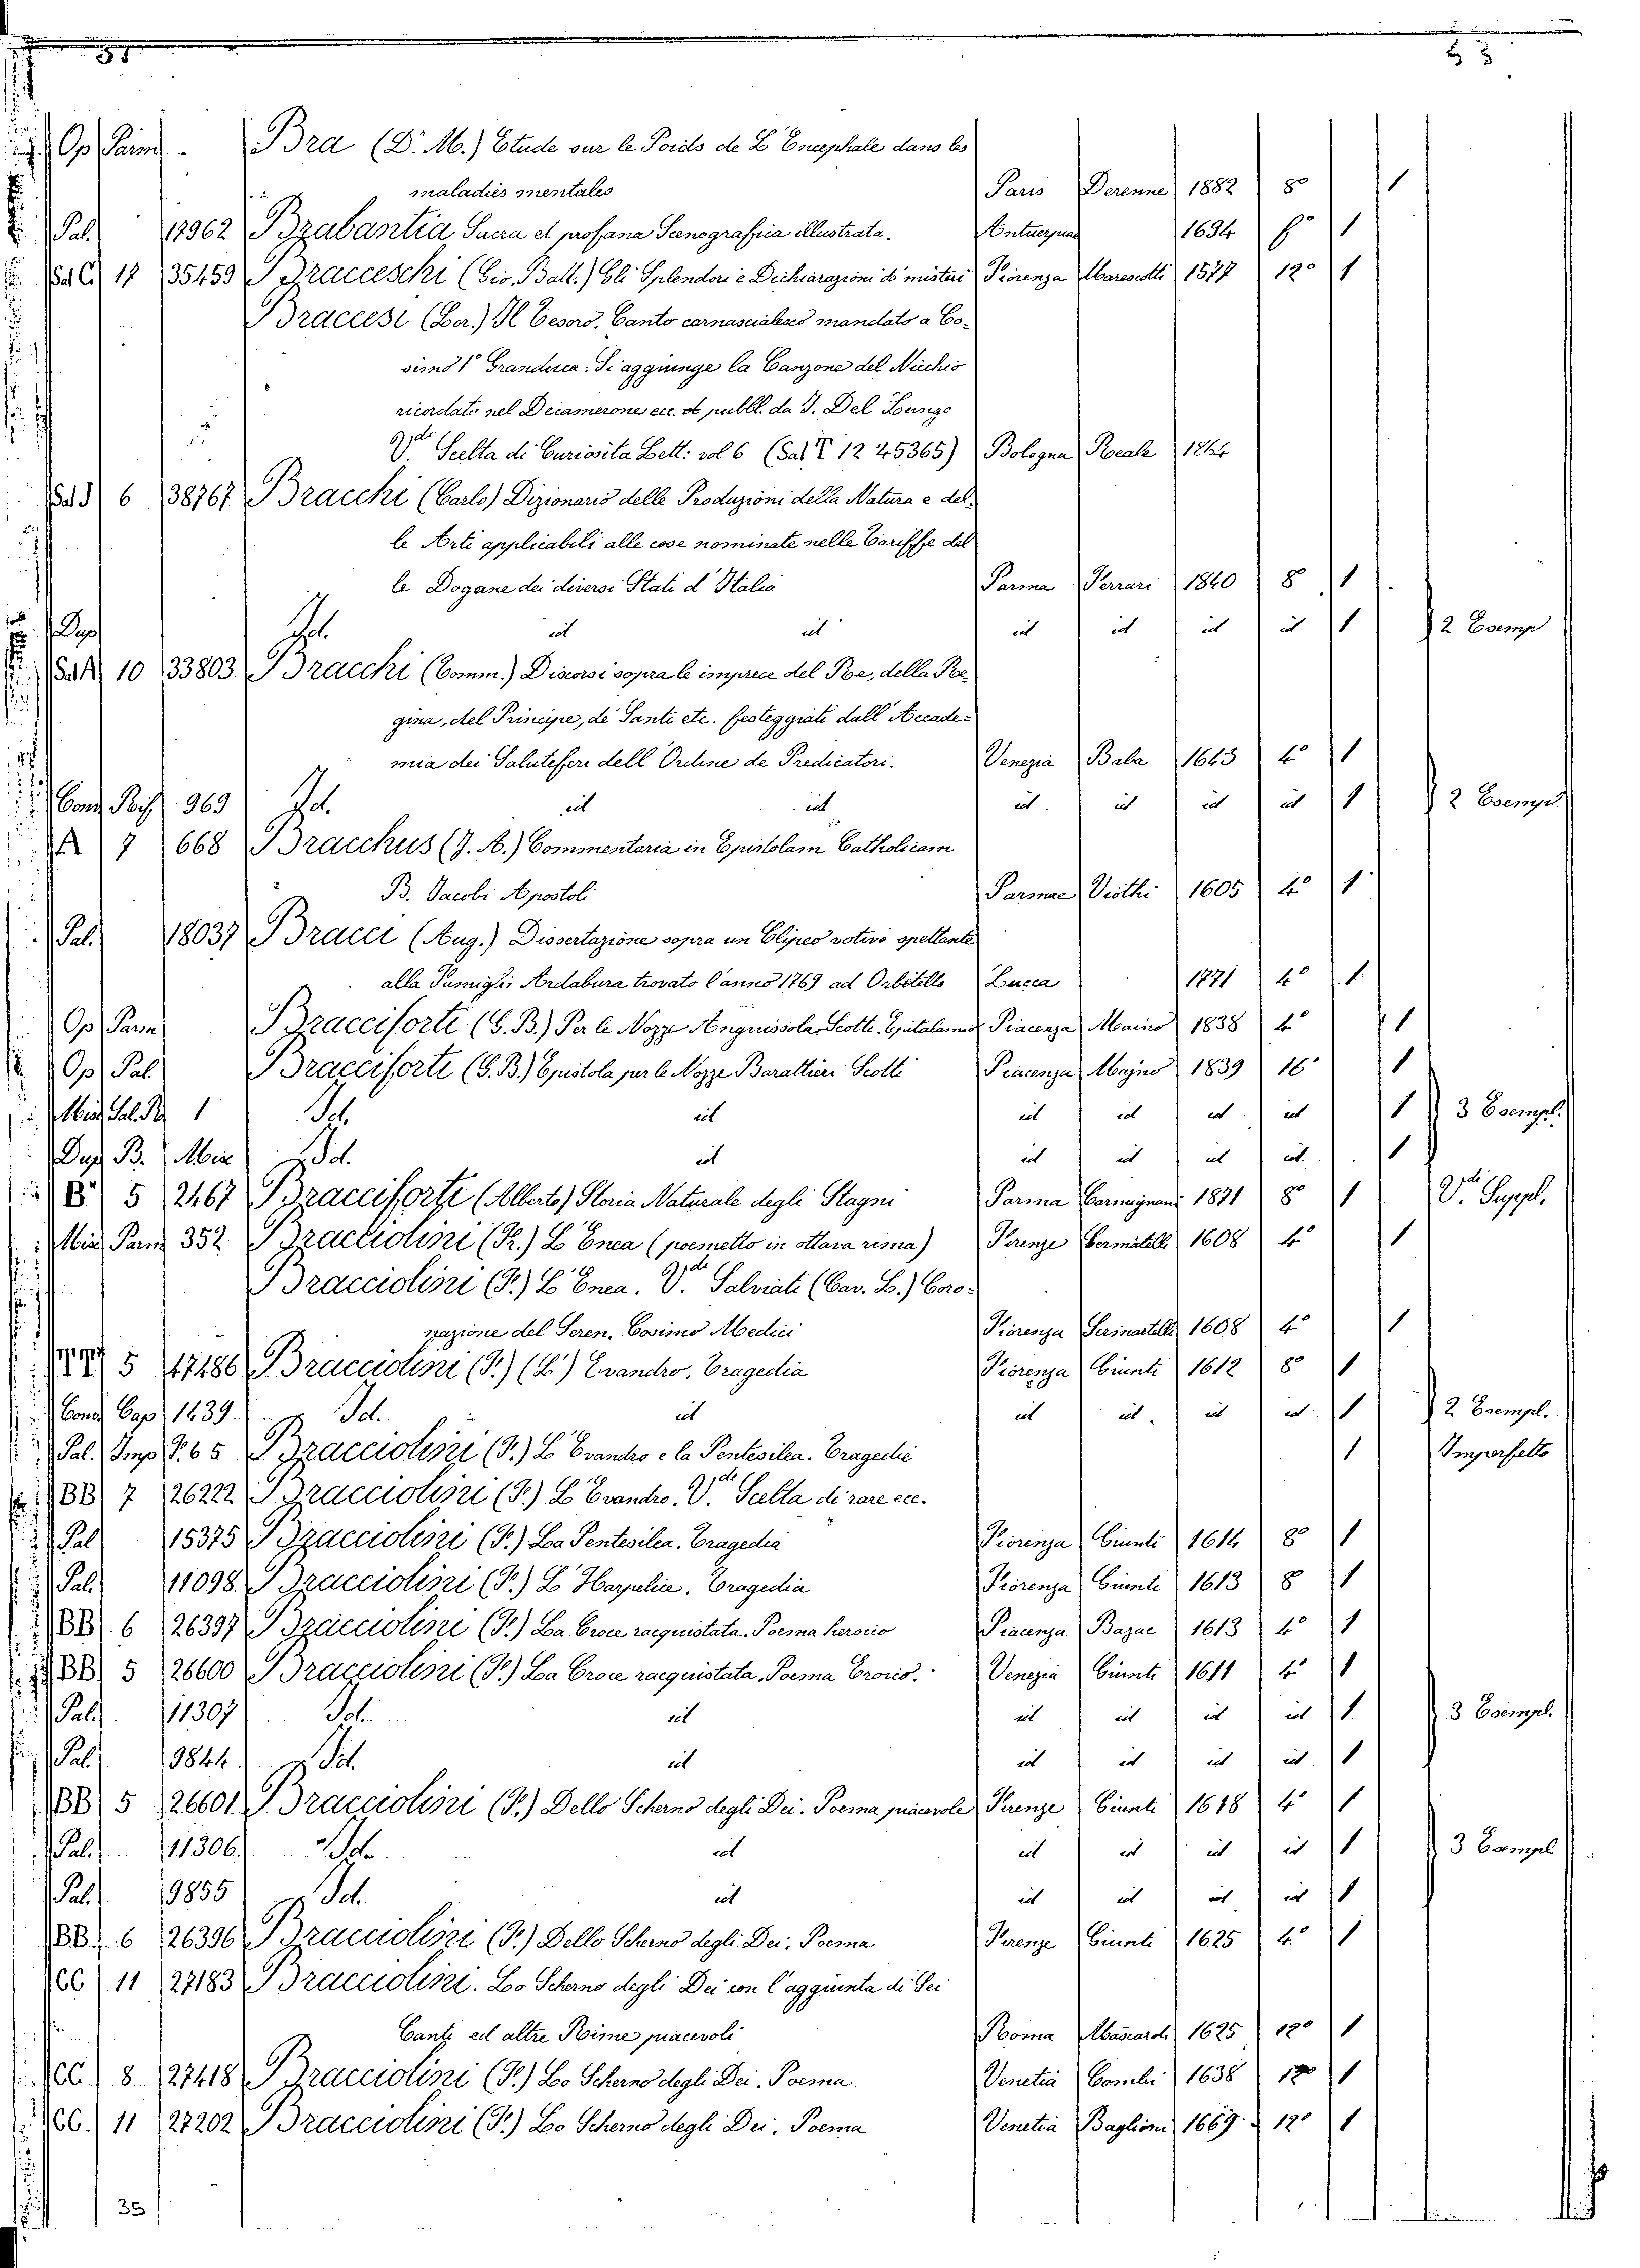 Op Parm. Bra (D.r M.) Etude sur le Poids de L'Encephale dans les
maladies mentales Paris Derenne 1882 8° 1
Pal. 17962 Brabantia Sacra et profana Scenografica illustrata. Antuerpiae 1694 f° 1
Sal C 17 35459 Bracceschi (Gio. Batt.) Gli Splendori e Dichiarazioni de misteri Fiorenza Marescotti 1577 12° 1
Braccesi (Ger.) Il Tesoro. Canto carnascialesco mandato a Co-
simo 1° Granduca. Si aggiunge la Canzone del Nicchio
ricordati nel Decamerone ecc. e pubbl. da I. Del Lungo
V.di Scelta di Curiosita Lett: vol 6 (Sal T 12 45365) Bologna Reale 1864
Sal I 6 38767 Bracchi (Carlo) Dizionario delle Produzioni della Natura e del-
le Arti applicabili alle cose nominate nelle Tariffe del
le Dogane dei diversi Stati d'Italia Parma Ferrari 1840 8 1
Dup Id. id id id id id id 1 2 Esemp
Sal 10 33803 Bracchi (Comm.) Discorsi sopra le imprese del Re, della Re-
gina, del Principe, de Santi etc. festeggiati dall'Accade-
mia dei Saluteferi dell Ordine de Predicatori. Venezia Baba 1643 4° 1
Cond. Rif 969 Id. id id id id id id 1 2 Esempl
A 7 668 Bracchus (J. A.) Commentaria in Epistolam Catholicam
B. Jacobi Apostoli Parmae Viothi 1605 4° 1
Pal. 18037 Bracci (Aug.) Dissertazione sopra un Clipeo votivo spettante
alla Famiglia Ardabura trovato l'anno 1769 ad Orbitello Lucca 1771 4° 1
Op Parm Bracciforte (G. B.) Per le Nozze Anguissola-Scotti. Epitalamio Piacenza Maino 1838 4° 1
Op. Pal. Bracciforte (G. B.) Epistola per le Nozze Barattieri Scotti Piacenza Majno 1839 16° 1
1 Id. id id id id id 1 3 Esempl.
Dup B. Mis Id. id id id id id. 1
B 5 2467 Bracciforte (Alberto) Storia Naturale degli Stagni Parma Carmignani 1871 8° 1 V.di Suppl.
Mis Parm 352 Bracciolini (F.) L'Enea (poemetto in ottava rima) Firenze Sermatelli 1608 4° 1
Bracciolini (F.) L'Enea. V.di Salviati (Cav. L.) Coro-
nazione del Seren. Cosimo Medici Fiorenza Sermartelli 1608 4° 1
5 47186 Bracciolini (F.) (L') Evandro. Tragedia Fiorenza Giunti 1612 8° 1
Cond Cap 1439. Id. id id id. id id. 1 2 Esempl.
Pal. Imp P. 65 Bracciolini (F.) L'Evandro e la Pentesilea. Tragedie 1 Imperfetto
BB 7 26222 Bracciolini (F.) L'Evandro. V.di Scelta di rare ecc.
Pal 15375 Bracciolini (F.) La Pentesilea. Tragedia Fiorenza Giunti 1614 8° 1
Pal. 11098 Bracciolini (F.) L'Harpalice. Tragedia Fiorenza Giunti 1613 8 1
BB. 6 26397 Bracciolini (F.) La Croce racquistata. Poema heroico Piacenza Bazac 1613 4° 1
BB 5 26600 Bracciolini (F.) La Croce racquistata. Poema Eroico. Venezia Giunti 1611 4° 1
Pal. 11307 Id. id id id id id. 1 3 Esempl.
Pal. 9844 Id. id id id id id. 1
BB 5 26601 Bracciolini (F.) Dello Scherno degli Dei. Poema piacevole Firenze Giunti 1618 4° 1
Pal. 11306. Id. id id id id id 1 3 Esempl
Pal. 9855 Id. id id id id id 1
BB. 6 26396 Bracciolini (F.) Dello Scherno degli Dei. Poema Firenze Giunti 1625 4° 1
CC 11 27183 Bracciolini. Lo Scherno degli Dei con l'aggiunta di Sei
Canti ed altre Rime piacevoli Roma Mascardi 1625 12° 1
CC 8 27418 Bracciolini (F.) Lo Scherno degli Dei. Poema Venetia Combi 1638 12° 1
CC. 11 27202 Bracciolini (F.) Lo Scherno degli Dei. Poema Venetia Baglioni 1669. 12° 1
35